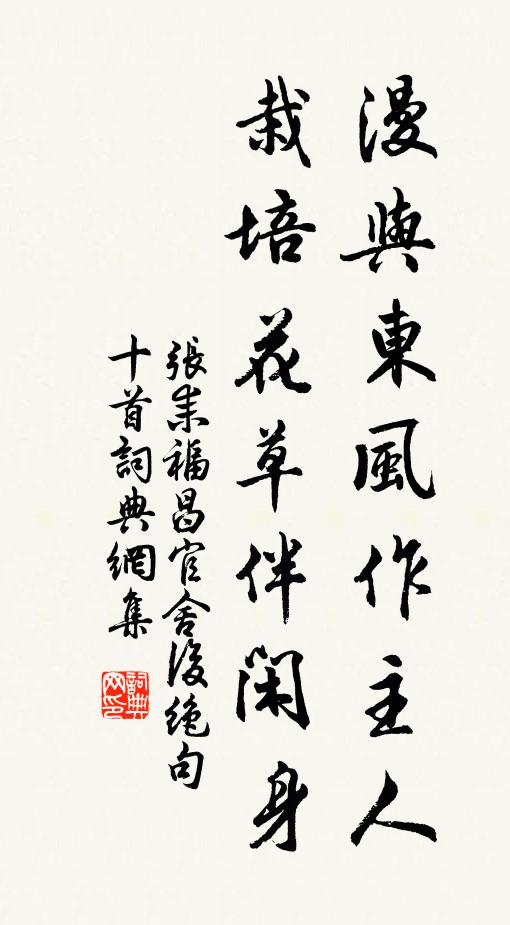 漫與東風作主人
栽培花草伴閑身
張耒福昌官舍後絶句
十首詞典網集
詞典
网印